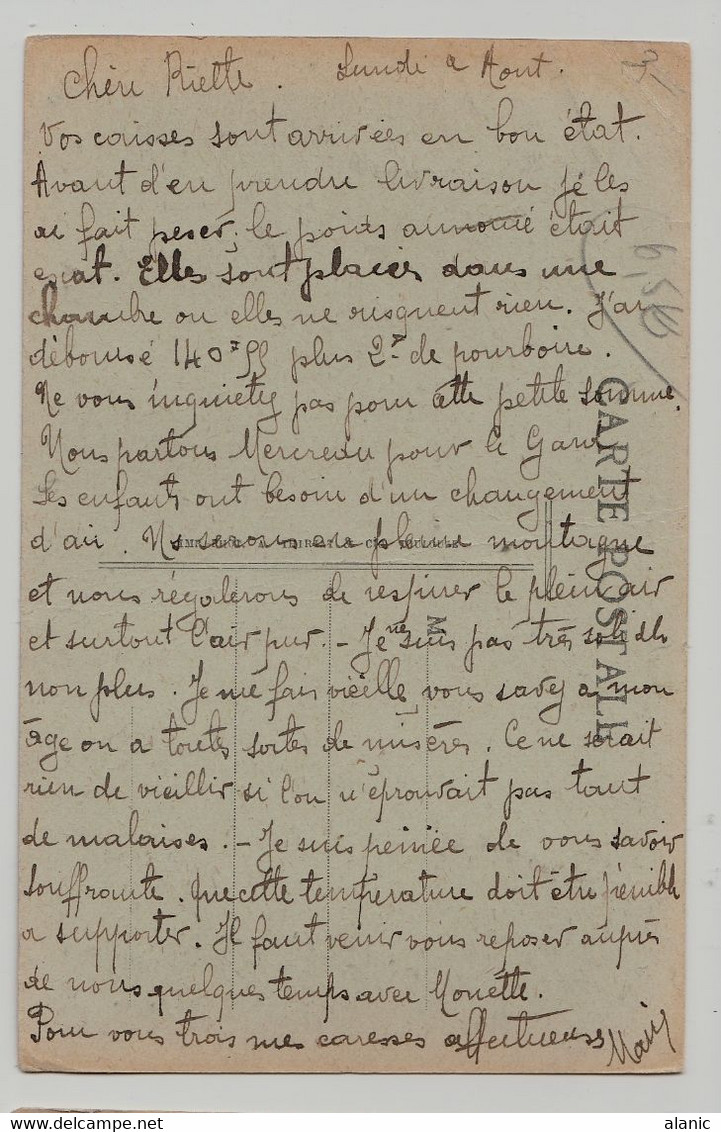 Chère Riette. Lundi 2 Aout.
Vos caisses sont arrivées en bon état.
Avant d'en prendre livraison je les
ai fait peser, le poids annoncé était
exat. Elles sont placées dans une
chambre ou elles ne risquent rien. J'ai
déboursé 140F55 plus 2F de pourboire.
Ne vous inquiétez pas pour cette petite somme.
Nous partons Mercredi pour le Gard
Les enfants ont besoin d'un changement
d'air. Ns serons en pleine montagne
et nous régalerons de respirer le plein air
et surtout l'air pur. - Je ne suis pas très solide
non plus. Je me fais vieille, vous savez à mon
âge on a toutes sortes de misères. Ce ne serait
rien de vieillir si l'on n'éprouvait pas tant
de malaises. - Je suis peinée de vous savoir
souffrante. Que cette température doit être pénible
a supporter. Il faut venir vous reposer auprès
de nous quelques temps avec Monette.
Pour vous trois mes caresses affectueuses
CARTE POSTALE
M
alanic